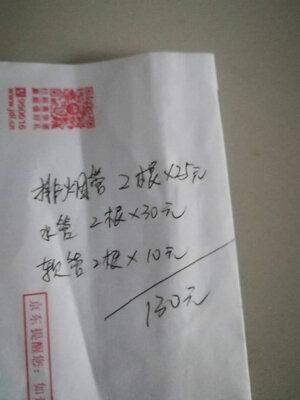 950616
www.jdl.cn
排烟管 2根×25元
水管 2根×30元
软管 2根×10元
130元
京东提醒您:如